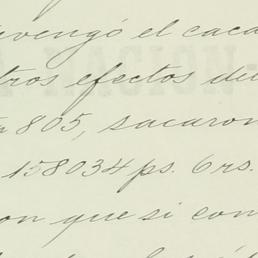 devengó el caca
tros efectos du
805, sacaron
158034 ps. 6 rs.
on que si con